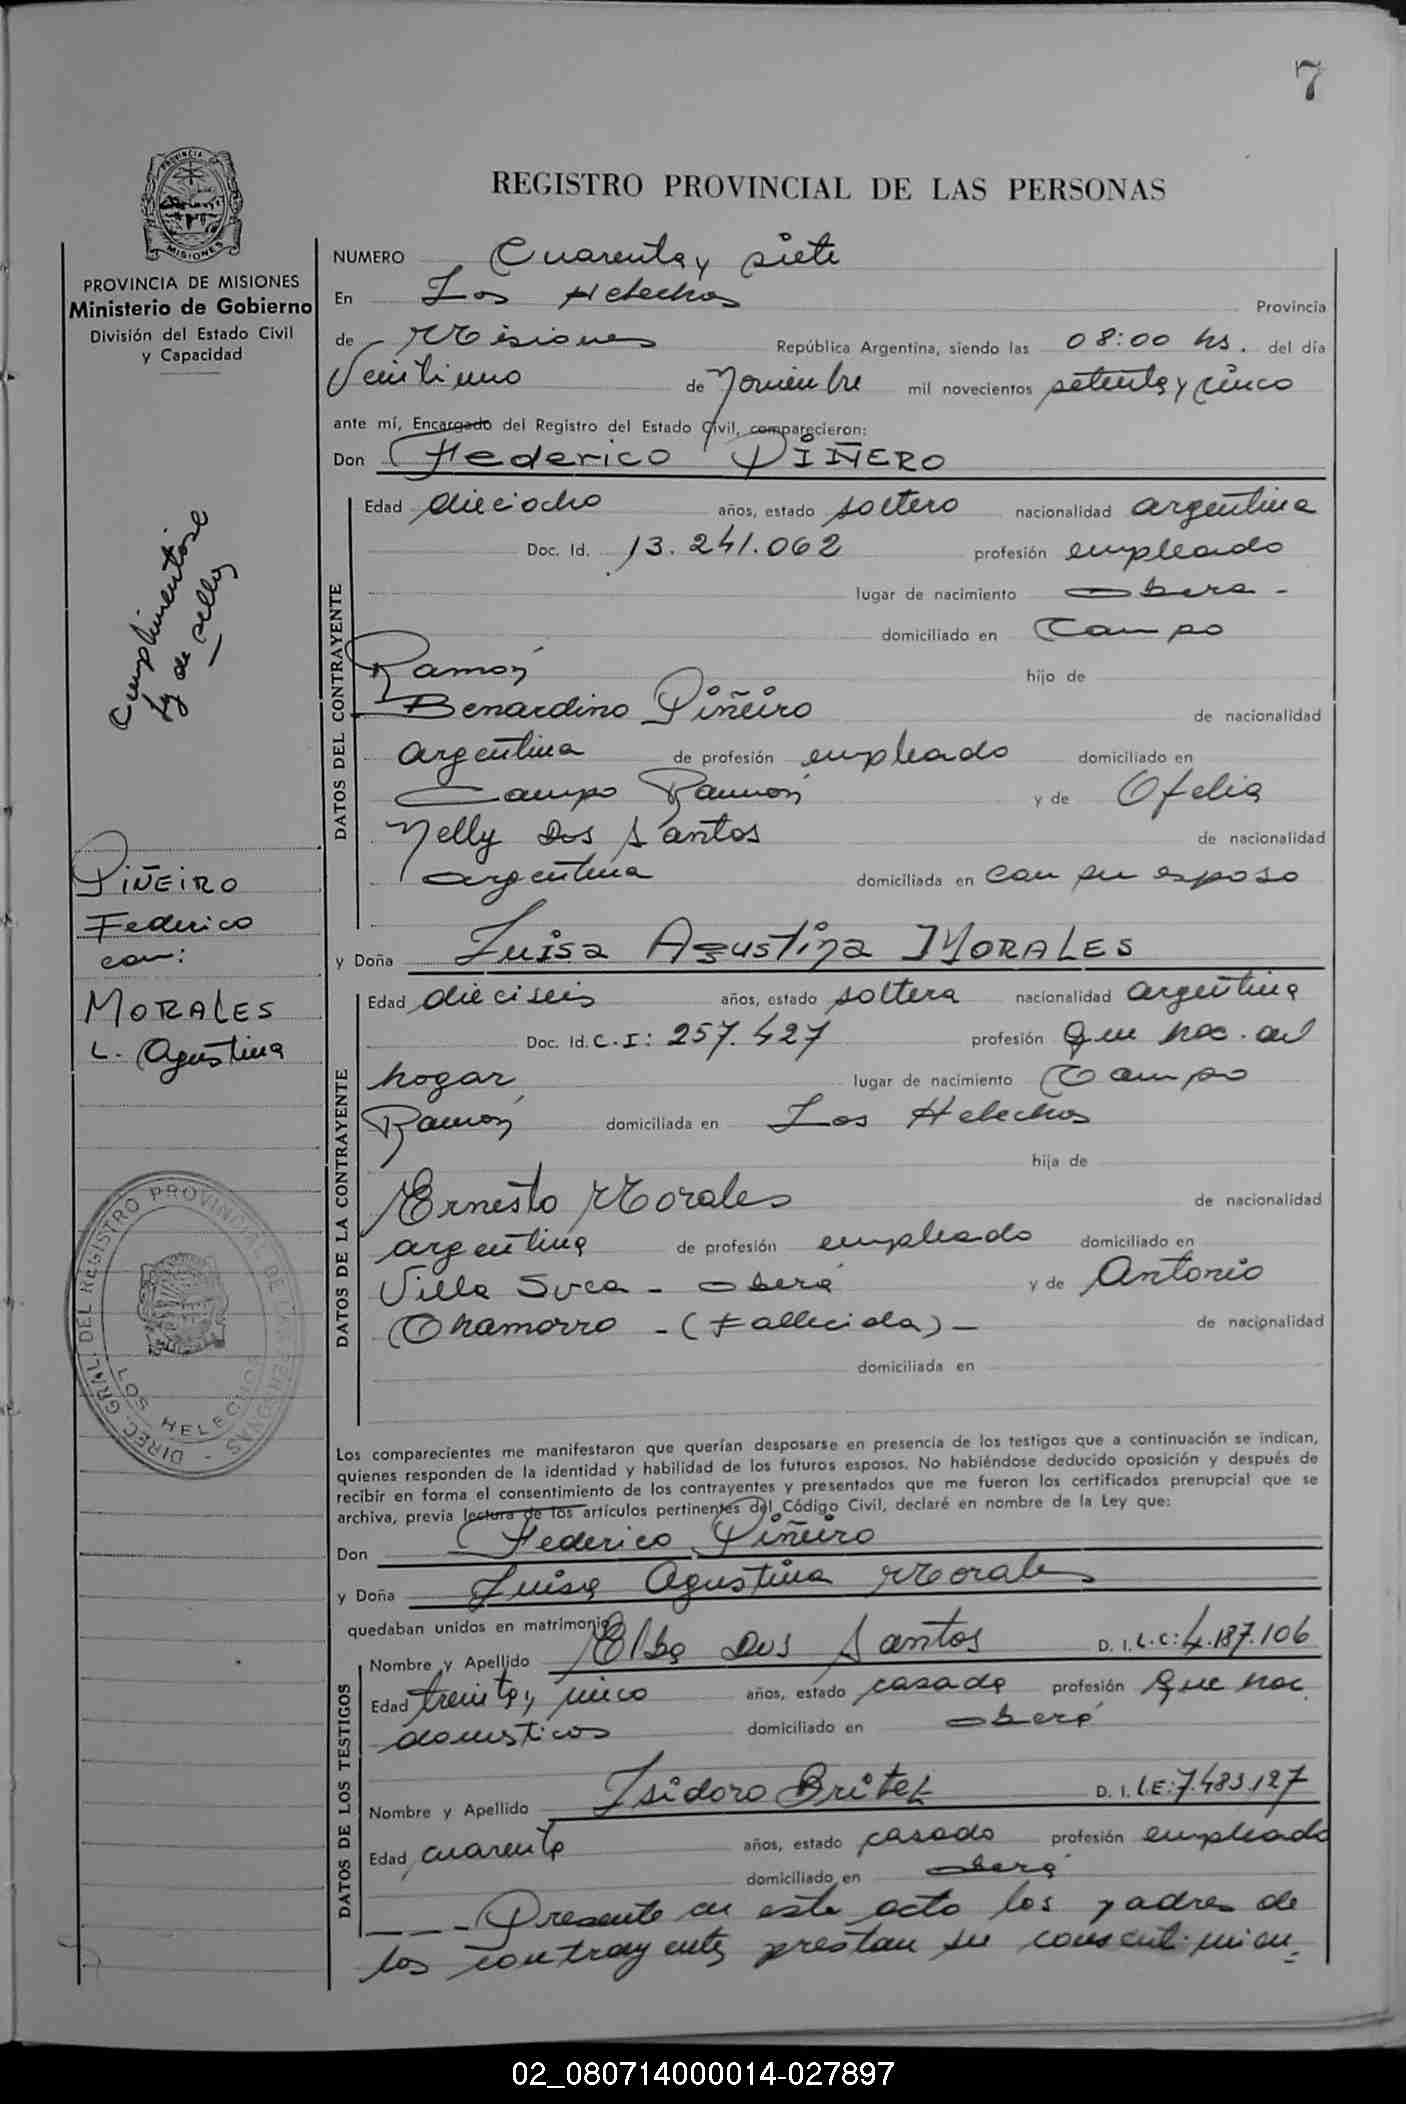 7
PROVINCIA DE
MISIONES
PROVINCIA DE MISIONES
Ministerio de Gobierno
División del Estado Civil
y Capacidad
Cumplimentose
Ley de sellos
PIÑEIRO
Federico
con:
MORALES
L. Agustina
DIREC. GRAL. DEL REGISTRO PROVINCIAL DE LAS PERSONAS
LOS HELECHOS
REGISTRO PROVINCIAL DE LAS PERSONAS
NUMERO Cuarenta y siete
En Los Helechos Provincia
de Misiones República Argentina, siendo las 08:00 hs. del día
Veintiuno de Noviembre mil novecientos setenta y cinco
ante mí, Encargado del Registro del Estado Civil, comparecieron:
Don Federico PIÑERO
DATOS DEL CONTRAYENTE
Edad dieciocho años, estado soltero nacionalidad argentina
Doc. Id. 13.241.062 profesión empleado
lugar de nacimiento Obera -
domiciliado en Campo
Ramón hijo de
Benardino Piñeiro de nacionalidad
argentina de profesión empleado domiciliado en
Campo Ramón y de Ofelia
Nelly Dos Santos de nacionalidad
argentina domiciliada en con su esposo
y Doña Luisa Agustina MORALES
DATOS DE LA CONTRAYENTE
Edad dieciseis años, estado soltera nacionalidad argentina
Doc. Id. C.I: 257.427 profesión Que hac. del
hogar lugar de nacimiento Campo
Ramón domiciliada en Los Helechos
hija de
Ernesto Morales de nacionalidad
argentina de profesión empleado domiciliado en
Villa Svea - Oberá y de Antonio
Chamorro - (Fallecida) - de nacionalidad
domiciliada en
Los comparecientes me manifestaron que querían desposarse en presencia de los testigos que a continuación se indican,
quienes responden de la identidad y habilidad de los futuros esposos. No habiéndose deducido oposición y después de
recibir en forma el consentimiento de los contrayentes y presentados que me fueron los certificados prenupcial que se
archiva, previa lectura de los artículos pertinentes del Código Civil, declaré en nombre de la Ley que:
Don Federico Piñeiro
y Doña Luisa Agustina Morales
quedaban unidos en matrimonio
DATOS DE LOS TESTIGOS
Nombre y Apellido Elba Dos Santos D. I. L.C: 4.187.106
Edad treinta y cinco años, estado casada profesión Que hac.
domesticos domiciliado en Oberá
Nombre y Apellido Isidoro Britez D. I. L.E: 7.483.127
Edad cuarenta años, estado casado profesión empleado
domiciliado en Oberá
- - - Presente en este acto los padres de
los contrayentes prestan su consentimien-
02_080714000014-027897